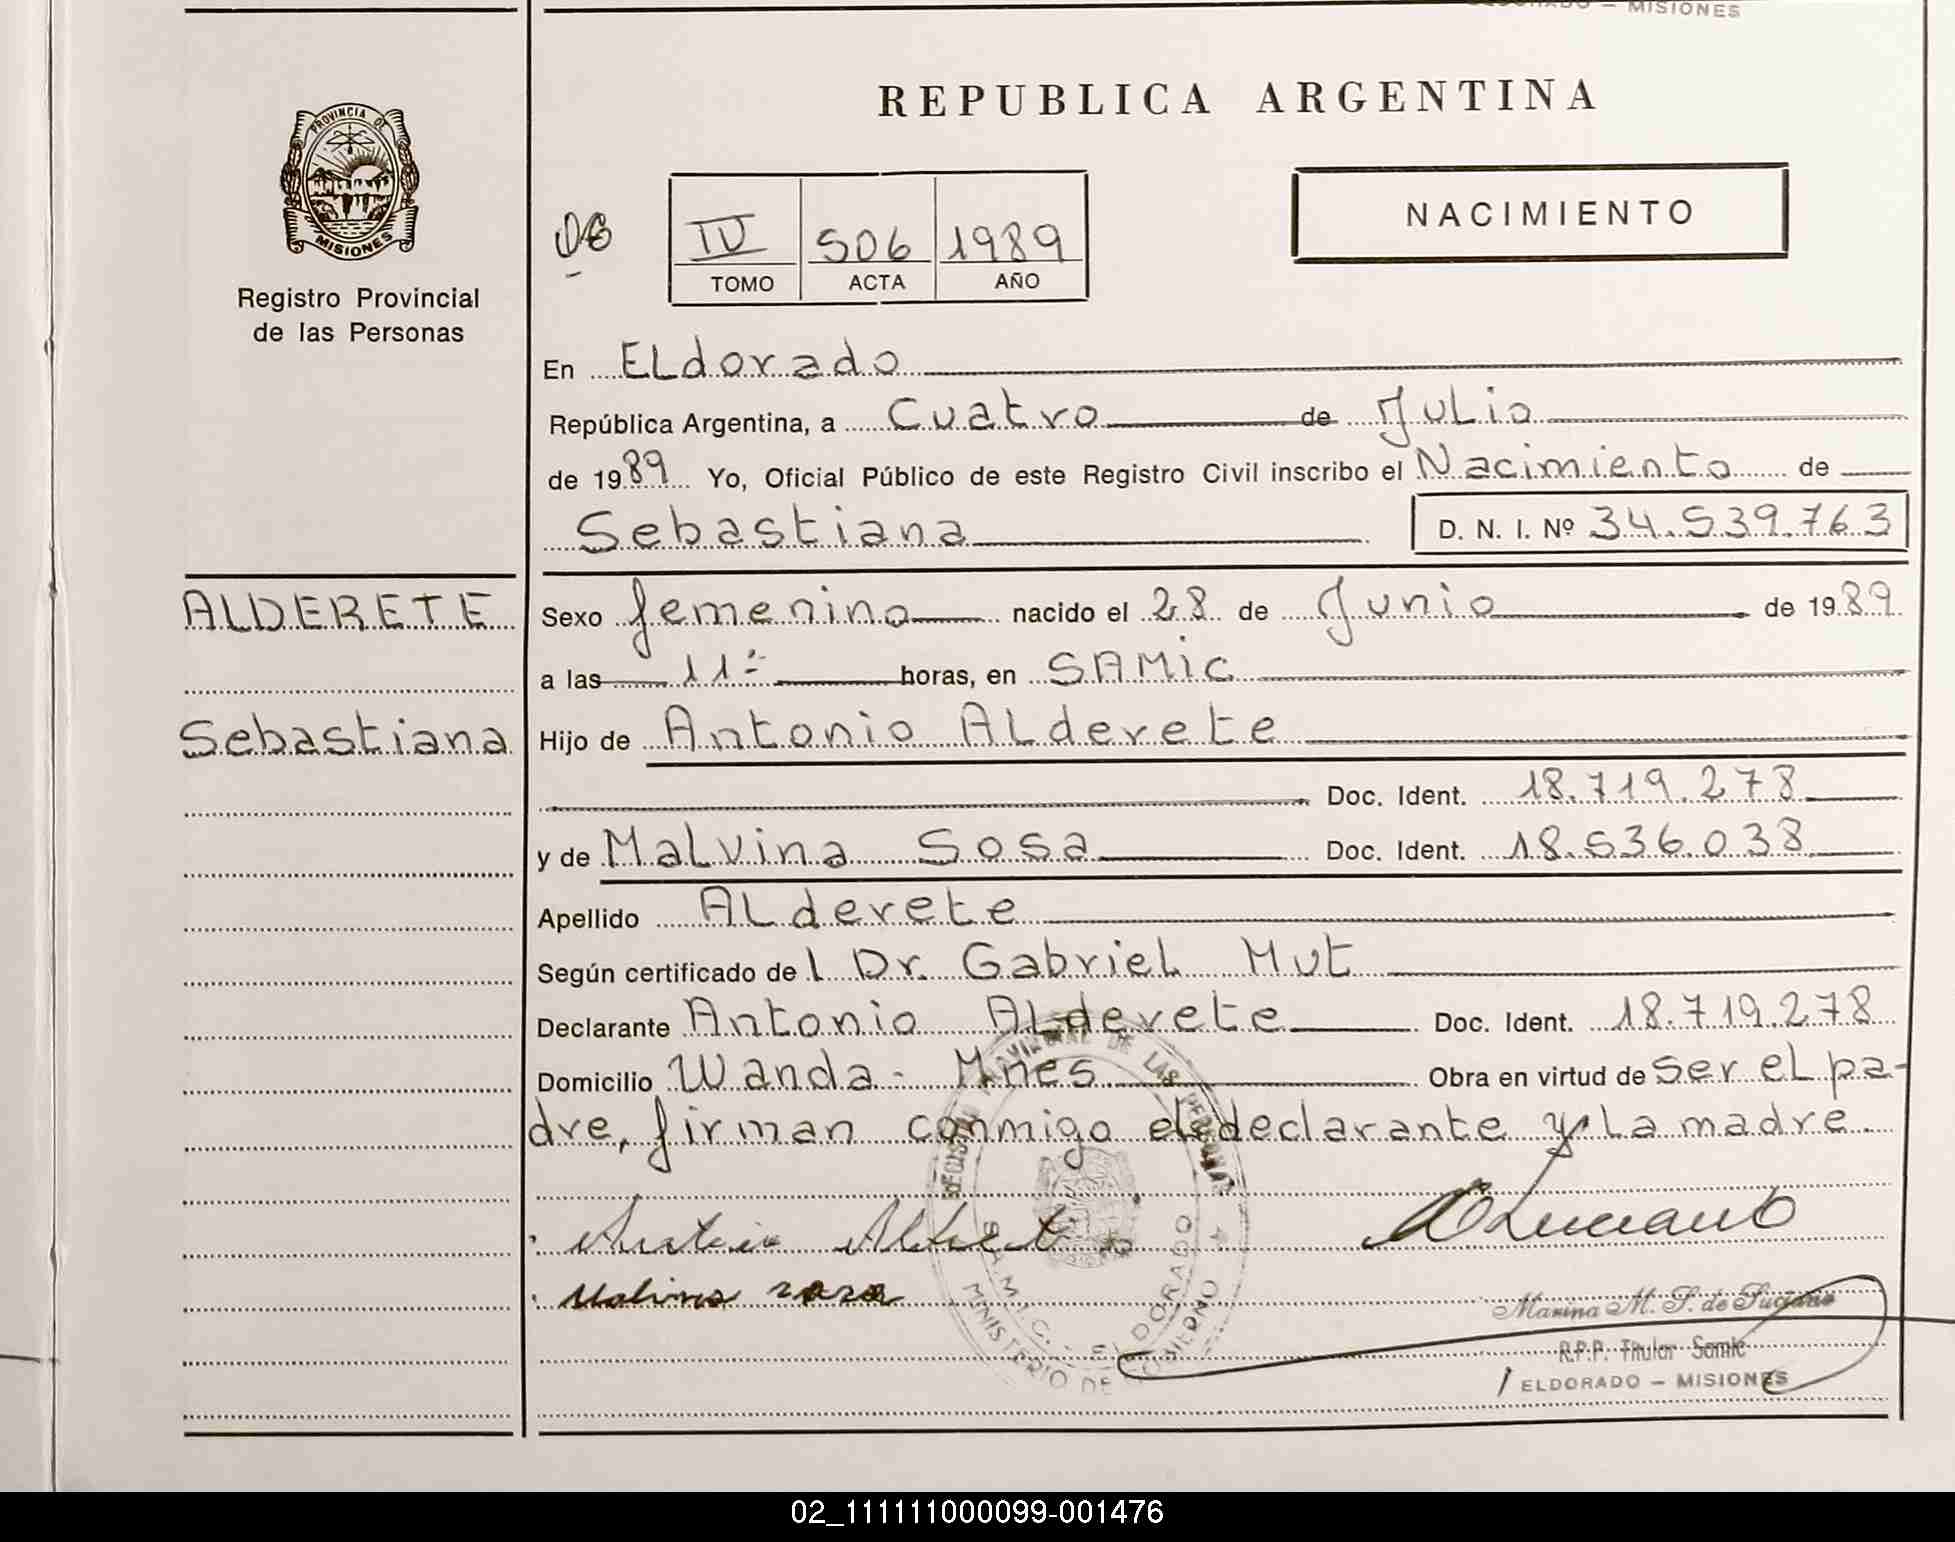 MISIONES
REPUBLICA ARGENTINA
PROVINCIA DE
MISIONES
Registro Provincial
de las Personas
06
IV 506 1989
TOMO ACTA AÑO
NACIMIENTO
En Eldorado
República Argentina, a Cuatro de Julio
de 1989 Yo, Oficial Público de este Registro Civil inscribo el Nacimiento de
Sebastiana D. N. I. Nº 34.539.763
ALDERETE
Sebastiana
Sexo femenino nacido el 28 de Junio de 1989
a las 11 horas, en SAMIC
Hijo de Antonio Alderete
Doc. Ident. 18.719.278
y de Malvina Sosa Doc. Ident. 18.536.038
Apellido Alderete
Según certificado de l Dr. Gabriel Mut
Declarante Antonio Alderete Doc. Ident. 18.719.278
Domicilio Wanda - Mnes Obra en virtud de ser el pa-
dre, firman conmigo el declarante y la madre.
Malvina sosa
PROVINCIAL DE LAS PERSONAS
S.A.M.I.C. ELDORADO
MINISTERIO DE GOBIERNO
Marina M. S. de Luciano
R.P.P. Titular Samic
ELDORADO - MISIONES
02_111111000099-001476